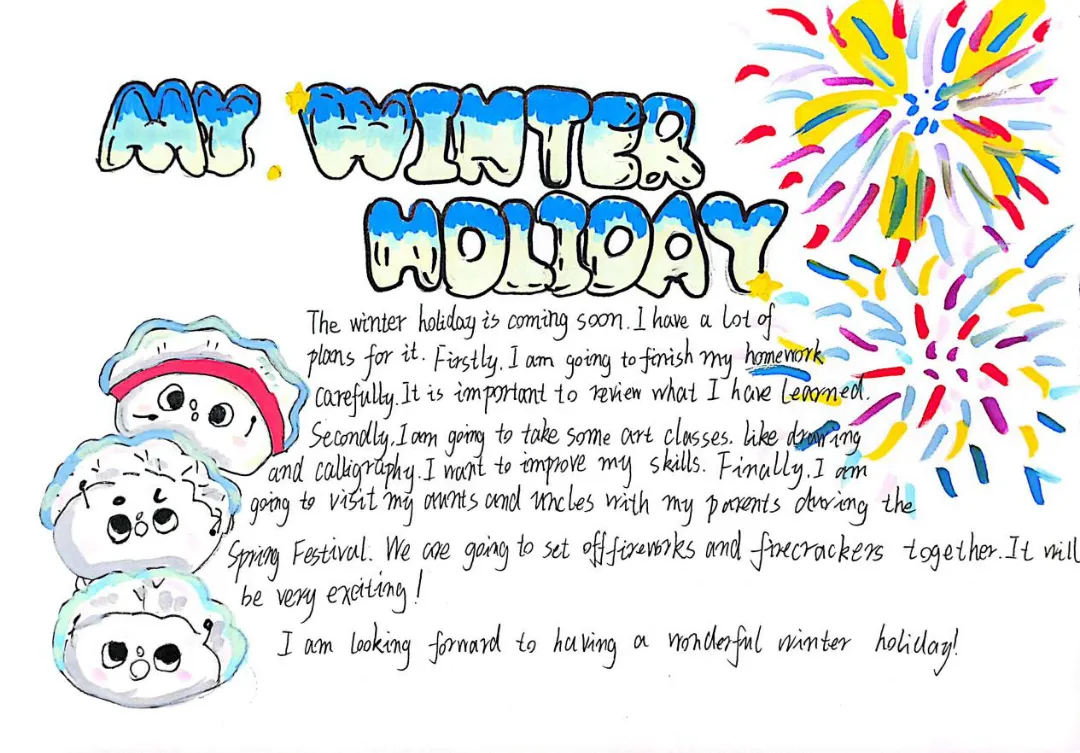 MY WINTER
HOLIDAY
The winter holiday is coming soon. I have a lot of
plans for it. Firstly, I am going to finish my homework
carefully. It is important to review what I have learned.
Secondly, I am going to take some art classes. like drawing
and calligraphy. I want to improve my skills. Finally, I am
going to visit my aunts and uncles with my parents during the
Spring Festival. We are going to set off fireworks and firecrackers together. It will
be very exciting!
I am looking forward to having a wonderful winter holiday!